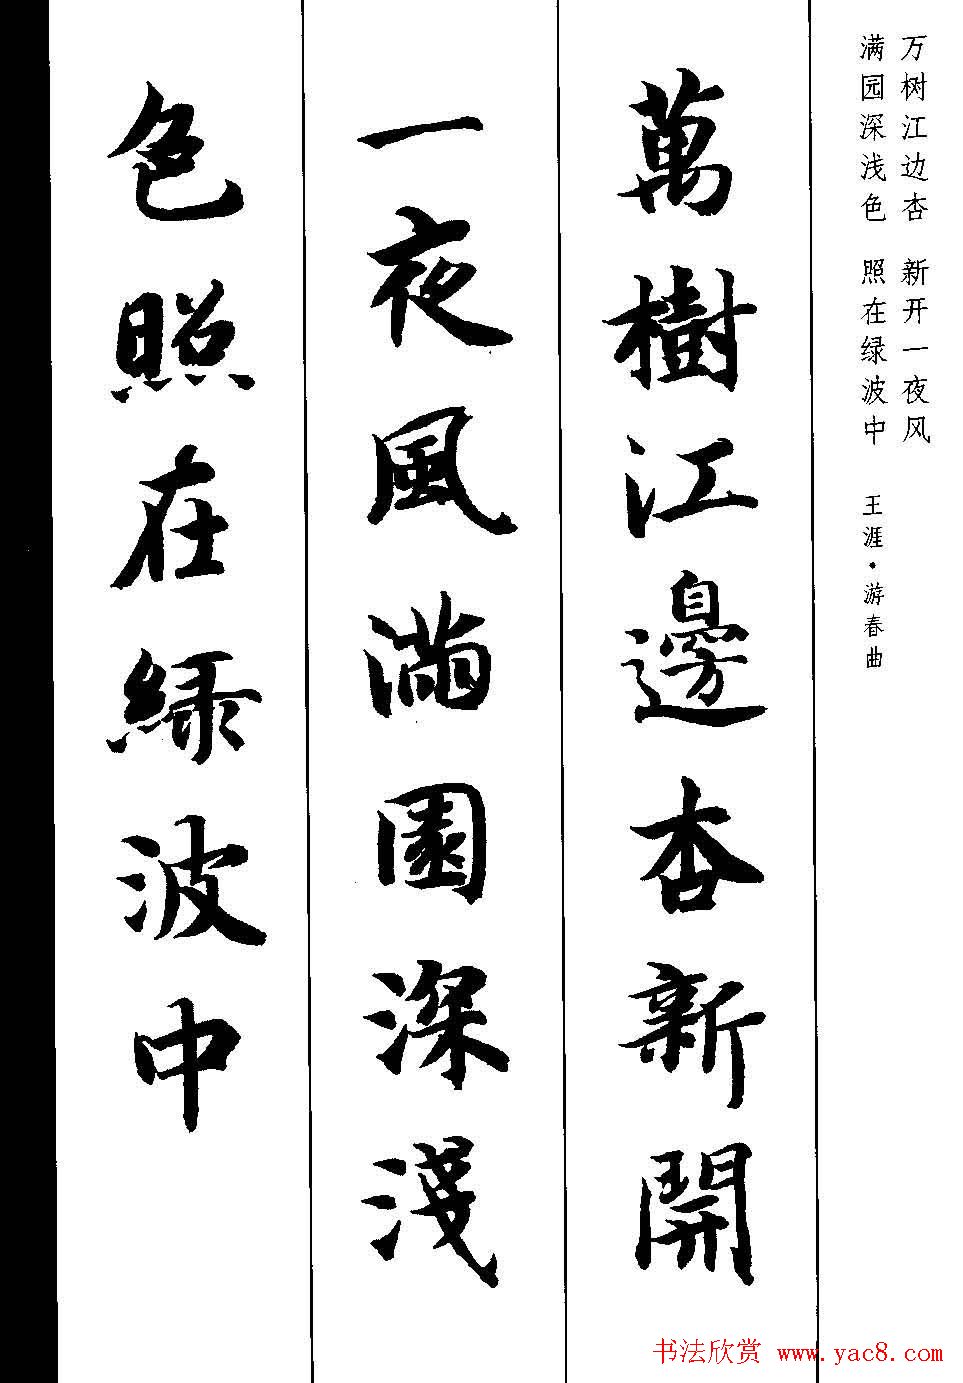 万树江边杏 新开一夜风
满园深浅色 照在绿波中
王涯·游春曲
萬樹江邊杏新開
一夜風滿園深淺
色照在緑波中
书法欣赏 www.yac8.com